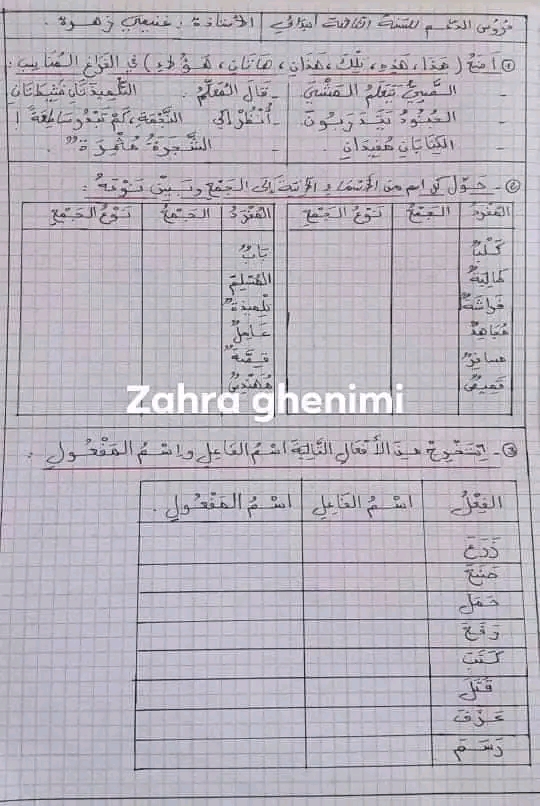 دروس الدعم للسنة الثانية ابتدائي الأستاذة: غنيمي زهرة.
① أضع (هذا، هذه، تلك، هذان، هاتان، هؤلاء) في الفراغ المناسب:
- الصبيُّ يتعلم المشي - قال المعلم: التلميذتان نشيطتان
- الجنودُ يتدربون - أُنظر إلى النجمة، كم تبدو ساطعةً!
- الكتابان مفيدان. - الشجرةُ مثمرةٌ.
② - حوّل كل اسم من الأسماء الآتية إلى الجمع وبيّن نوعه:
المفردُ الجمعُ نوع الجمع المفردُ الجمعُ نوع الجمع
كلبٌ بابٌ
طالبةٌ المسلم
فراشةٌ تلميذةٌ
مجاهدٌ عاملٌ
مسافرٌ قصةٌ
قميصٌ مهندسٌ
Zahra ghenimi
③ - استخرج من الأفعال التالية اسمُ الفاعل واسمُ المفعول:
الفِعْلُ اسْمُ الفَاعِلِ اسْمُ المَفْعُولِ.
زَرَعَ
صَنَعَ
حَمَلَ
رَفَعَ
كَتَبَ
قَتَلَ
عَزَفَ
رَسَمَ